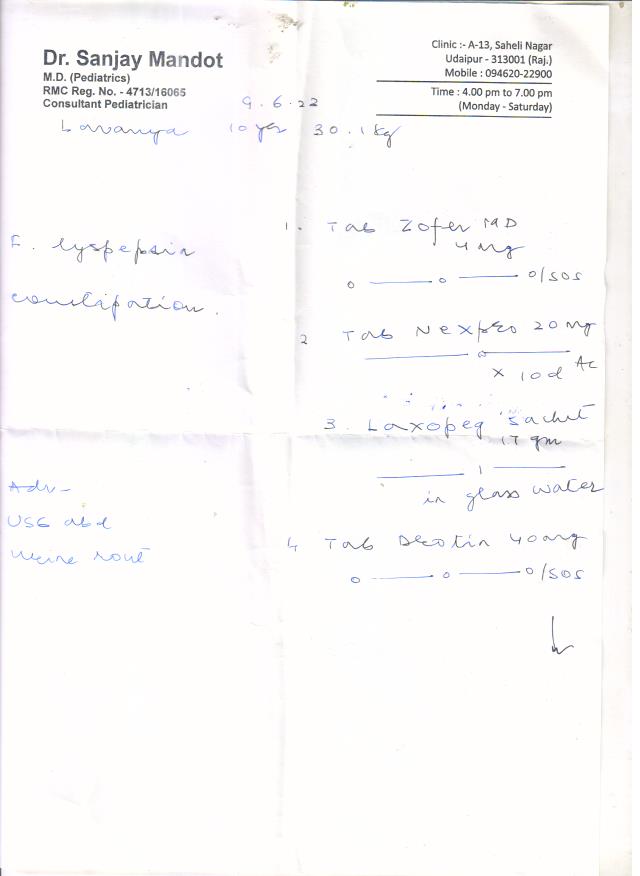 Dr. Sanjay Mandot
M.D. (Pediatrics)
RMC Reg. No. - 4713/16065
Consultant Pediatrician
Clinic :- A-13, Saheli Nagar
Udaipur - 313001 (Raj.)
Mobile : 094620-22900
Time : 4.00 pm to 7.00 pm
(Monday - Saturday)
9.6.22
Lavanya 10 yrs 30.1 kg
F. dyspepsia
constipation.
Adv-
USG abd
urine rout
1. Tab Zofer MD
4 mg
o — o — o/SOS
2 Tab Nexpro 20 mg
x 10d AC
3. Laxopeg sachet
17 gm
— 1 —
in glass water
4 Tab Drotin 40 mg
o — o — o/SOS